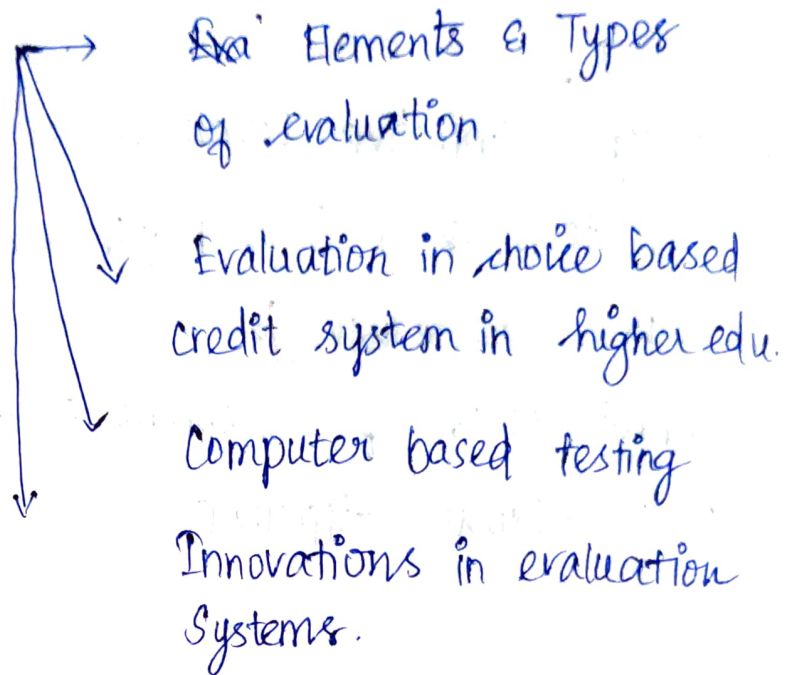 Elements & Types
of evaluation.
Evaluation in choice based
credit system in higher edu.
Computer based testing
Innovations in evaluation
Systems.